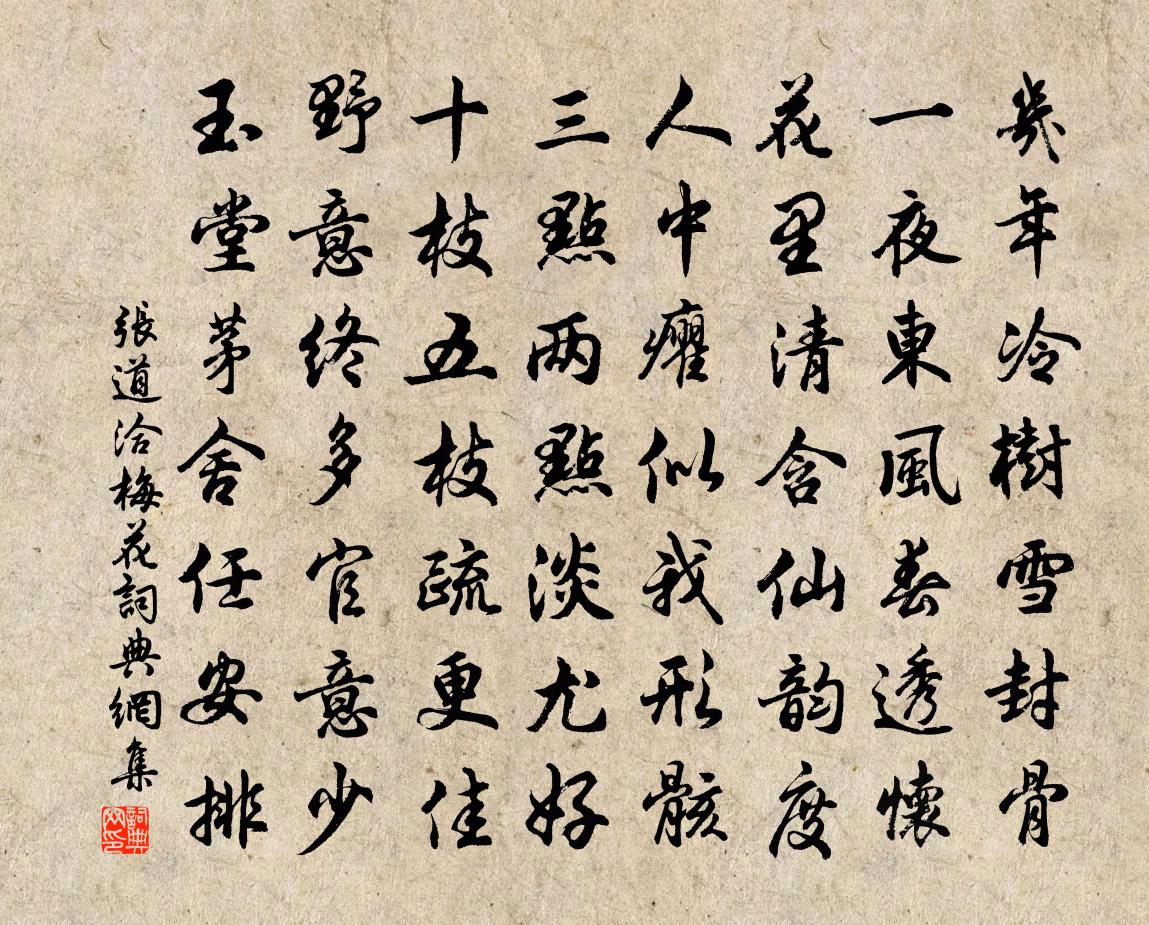 幾年冷樹雪封骨
一夜東風春透懷
花里清含仙韵度
人中癯似我形骸
三點兩點淡尤好
十枝五枝疏更佳
野意終多官意少
玉堂茅舍任安排
張道洽梅花詞典網集
詞典網印